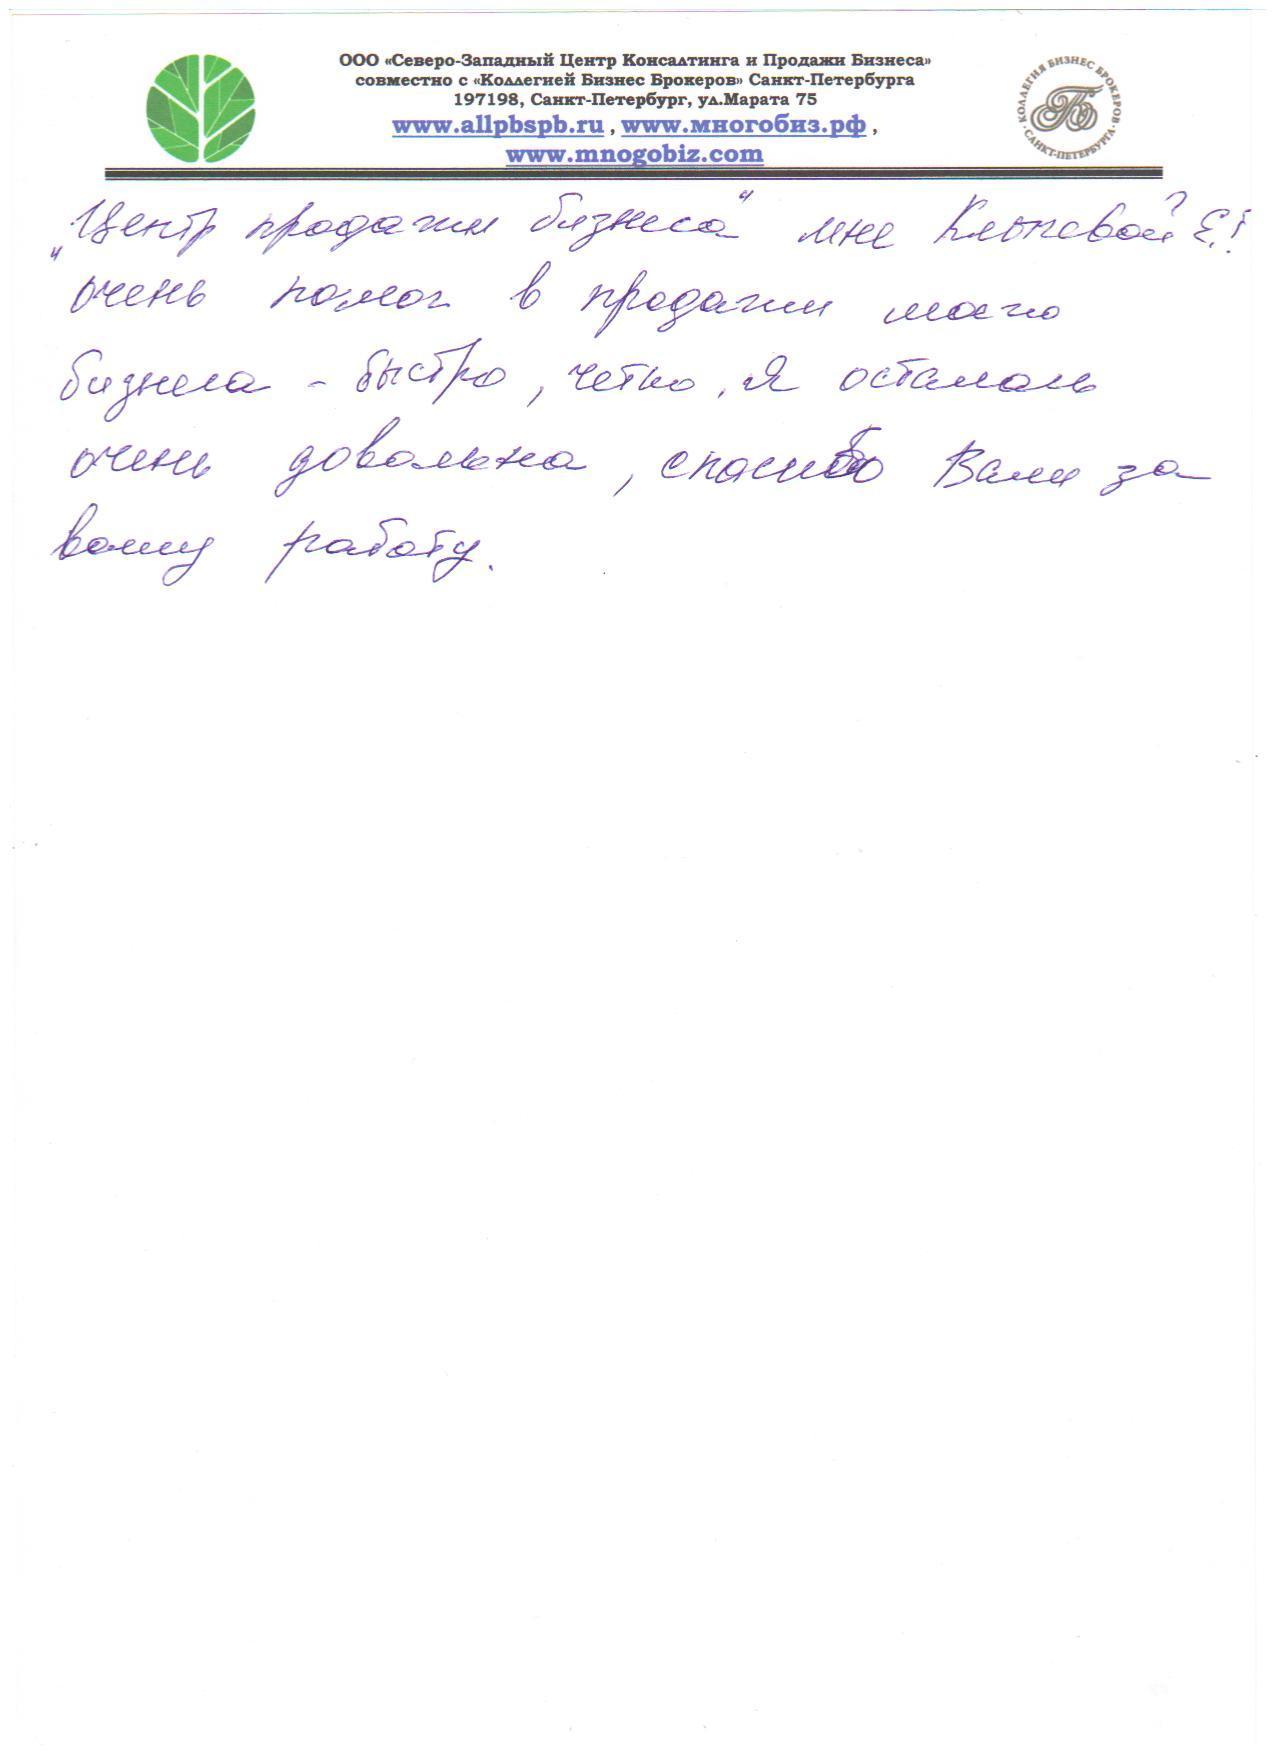 ООО «Северо-Западный Центр Консалтинга и Продажи Бизнеса»
совместно с «Коллегией Бизнес Брокеров» Санкт-Петербурга
197198, Санкт-Петербург, ул.Марата 75
www.allpbspb.ru , www.многобиз.рф ,
www.mnogobiz.com
КОЛЛЕГИЯ БИЗНЕС БРОКЕРОВ · САНКТ-ПЕТЕРБУРГА ·
„Центр продажи бизнеса“ мне Е.
очень помог в продажи моего
бизнеса - быстро, четко, я осталась
очень довольна, спасибо Вам за
вашу работу.